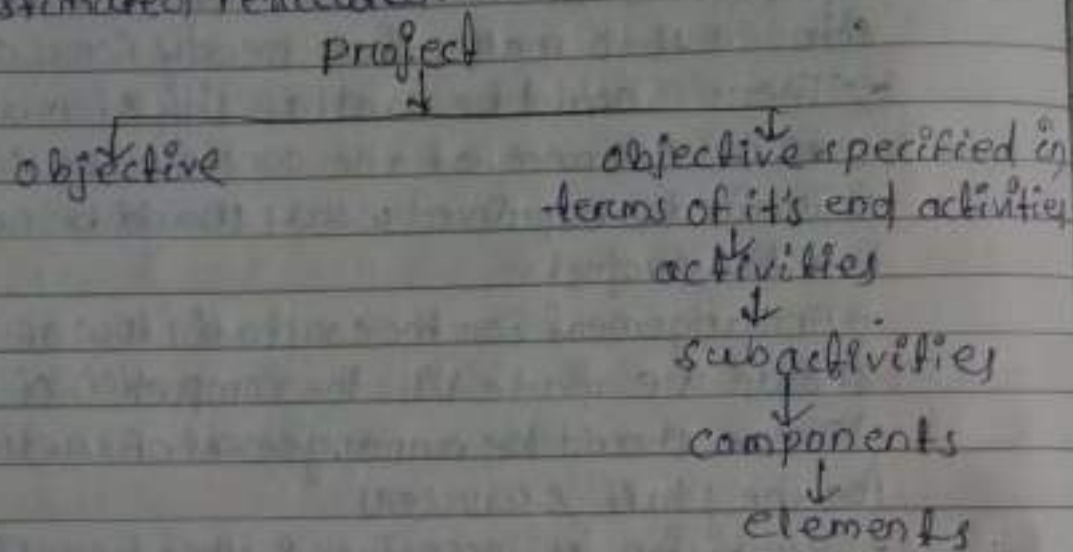 project
objective
objective specified in
terms of it's end activities
activities
subactivities
components
elements